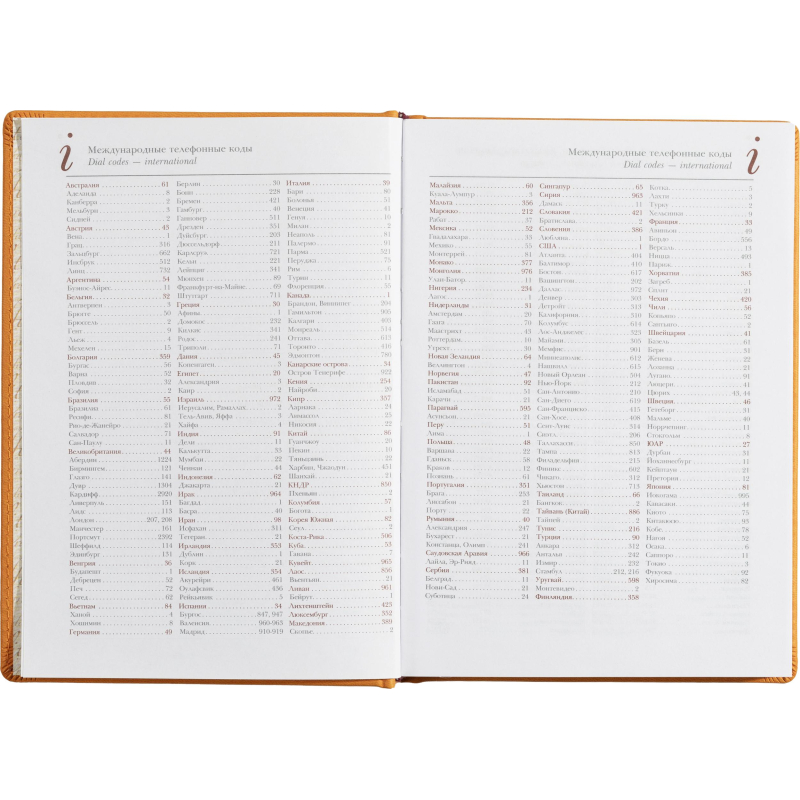 i
Международные телефонные коды
Dial codes — international
Австралия 61
Аделаида 8
Канберра 2
Мельбурн 3
Сидней 2
Австрия 43
Вена 1
Грац 316
Зальцбург 662
Инсбрук 512
Линц 732
Аргентина 54
Буэнос-Айрес 11
Бельгия 32
Антверпен 3
Брюгге 50
Брюссель 2
Гент 9
Льеж 4
Мехелен 15
Болгария 359
Бургас 56
Варна 52
Пловдив 32
София 2
Бразилия 55
Бразилиа 61
Ресифи 81
Рио-де-Жанейро 21
Салвадор 71
Сан-Паулу 11
Великобритания 44
Абердин 1224
Бирмингем 121
Глазго 141
Дувр 1304
Кардифф 2920
Ливерпуль 151
Лидс 113
Лондон 207, 208
Манчестер 161
Портсмут 2392
Шеффилд 114
Эдинбург 131
Венгрия 36
Будапешт 1
Дебрецен 52
Печ 72
Сегед 62
Вьетнам 84
Ханой 4
Хошимин 8
Германия 49
Берлин 30
Бонн 228
Бремен 421
Гамбург 40
Ганновер 511
Дрезден 351
Дуйсбург 203
Дюссельдорф 211
Карлсруэ 721
Кельн 221
Лейпциг 341
Мюнхен 89
Франкфурт-на-Майне 69
Штутгарт 711
Греция 30
Афины 1
Домокос 232
Килкис 341
Родос 241
Триполи 71
Дания 45
Копенгаген 3
Египет 20
Александрия 3
Каир 2
Израиль 972
Иерусалим, Рамаллах 2
Тель-Авив, Яффа 3
Хайфа 4
Индия 91
Дели 11
Калькутта 33
Мумбаи 22
Ченнаи 44
Индонезия 62
Джакарта 21
Ирак 964
Багдад 1
Басра 40
Иран 98
Исфахан 311
Тегеран 21
Ирландия 353
Дублин 1
Корк 21
Исландия 354
Акурейри 461
Оулафсвик 436
Рейкьявик 5
Испания 34
Бургос 847, 947
Валенсия 960-963
Мадрид 910-919
Италия 39
Бари 80
Болонья 51
Венеция 41
Генуя 10
Милан 2
Неаполь 81
Палермо 91
Парма 521
Перуджа 75
Рим 6
Турин 11
Флоренция 55
Канада 1
Брандон, Виннипег 204
Гамильтон 905
Калгари 403
Монреаль 514
Оттава 613
Торонто 416
Эдмонтон 780
Канарские острова 34
Остров Тенерифе 922
Кения 254
Найроби 20
Кипр 357
Ларнака 24
Лимассол 25
Никосия 22
Китай 86
Гуанчжоу 20
Пекин 10
Тяньцзинь 22
Харбин, Чжаодун 451
Шанхай 21
КНДР 850
Пхеньян 2
Колумбия 57
Богота 1
Корея Южная 82
Сеул 2
Коста-Рика 506
Куба 53
Гавана 7
Кувейт 965
Лаос 856
Вьентьян 21
Ливан 961
Бейрут 1
Лихтенштейн 423
Люксембург 352
Македония 389
Скопье 2
i
Международные телефонные коды
Dial codes — international
Малайзия 60
Куала-Лумпур 3
Мальта 356
Марокко 212
Рабат 37
Мексика 52
Гвадалахара 33
Мехико 55
Монтеррей 81
Монако 377
Монголия 976
Улан-Батор 11
Нигерия 234
Лагос 1
Нидерланды 31
Амстердам 20
Гаага 70
Маастрихт 43
Роттердам 10
Утрехт 30
Новая Зеландия 64
Веллингтон 4
Норвегия 47
Пакистан 92
Исламабад 51
Карачи 21
Парагвай 595
Асунсьон 21
Перу 51
Лима 1
Польша 48
Варшава 22
Гданьск 58
Краков 12
Познань 61
Португалия 351
Брага 253
Лиссабон 21
Порту 22
Румыния 40
Александрия 247
Бухарест 21
Констанца, Олими 241
Саудовская Аравия 966
Лайла, Эр-Рияд 11
Сербия 381
Белград 11
Нови-Сад 21
Суботица 24
Сингапур 65
Сирия 963
Дамаск 11
Словакия 421
Братислава 2
Словения 386
Любляна 1
США 1
Атланта 404
Балтимор 410
Бостон 617
Вашингтон 202
Даллас 972
Денвер 303
Детройт 313
Калифорния 310
Колумбус 614
Лос-Анджелес 323
Майами 305
Мемфис 901
Миннеаполис 612
Нашвилл 615
Новый Орлеан 504
Нью-Йорк 212
Сан-Антонио 210
Сан-Диего 619
Сан-Франциско 415
Сан-Хосе 408
Сент-Луис 314
Сиэтл 206
Тампа 813
Таллахасси 850
Филадельфия 215
Финикс 602
Чикаго 312
Хьюстон 713
Таиланд 66
Бангкок 2
Тайвань (Китай) 886
Тайпей 2
Тунис 216
Турция 90
Анкара 312
Анталья 242
Измир 232
Стамбул 212, 216
Уругвай 598
Монтевидео 2
Финляндия 358
Котка 5
Лахти 3
Турку 2
Хельсинки 9
Франция 33
Авиньон 49
Бордо 556
Версаль 13
Ницца 493
Париж 1
Хорватия 385
Загреб 1
Сплит 21
Чехия 420
Чили 56
Консепсьон
Сантьяго 2
Швейцария 41
Базель 61
Берн 31
Женева 22
Лозанна 21
Лугано 91
Люцерн 41
Цюрих 43, 44
Швеция 46
Гетеборг 31
Мальме 40
Норрчепинг 11
Стокгольм 8
ЮАР 27
Дурбан 31
Йоханнесбург 11
Кейптаун 21
Претория 12
Япония 81
Иокогама
Кавасаки 44
Киото 75
Китакюсю 93
Кобе 78
Нагоя 52
Осака 6
Саппоро 11
Токио 3
Фукуока 92
Хиросима 82